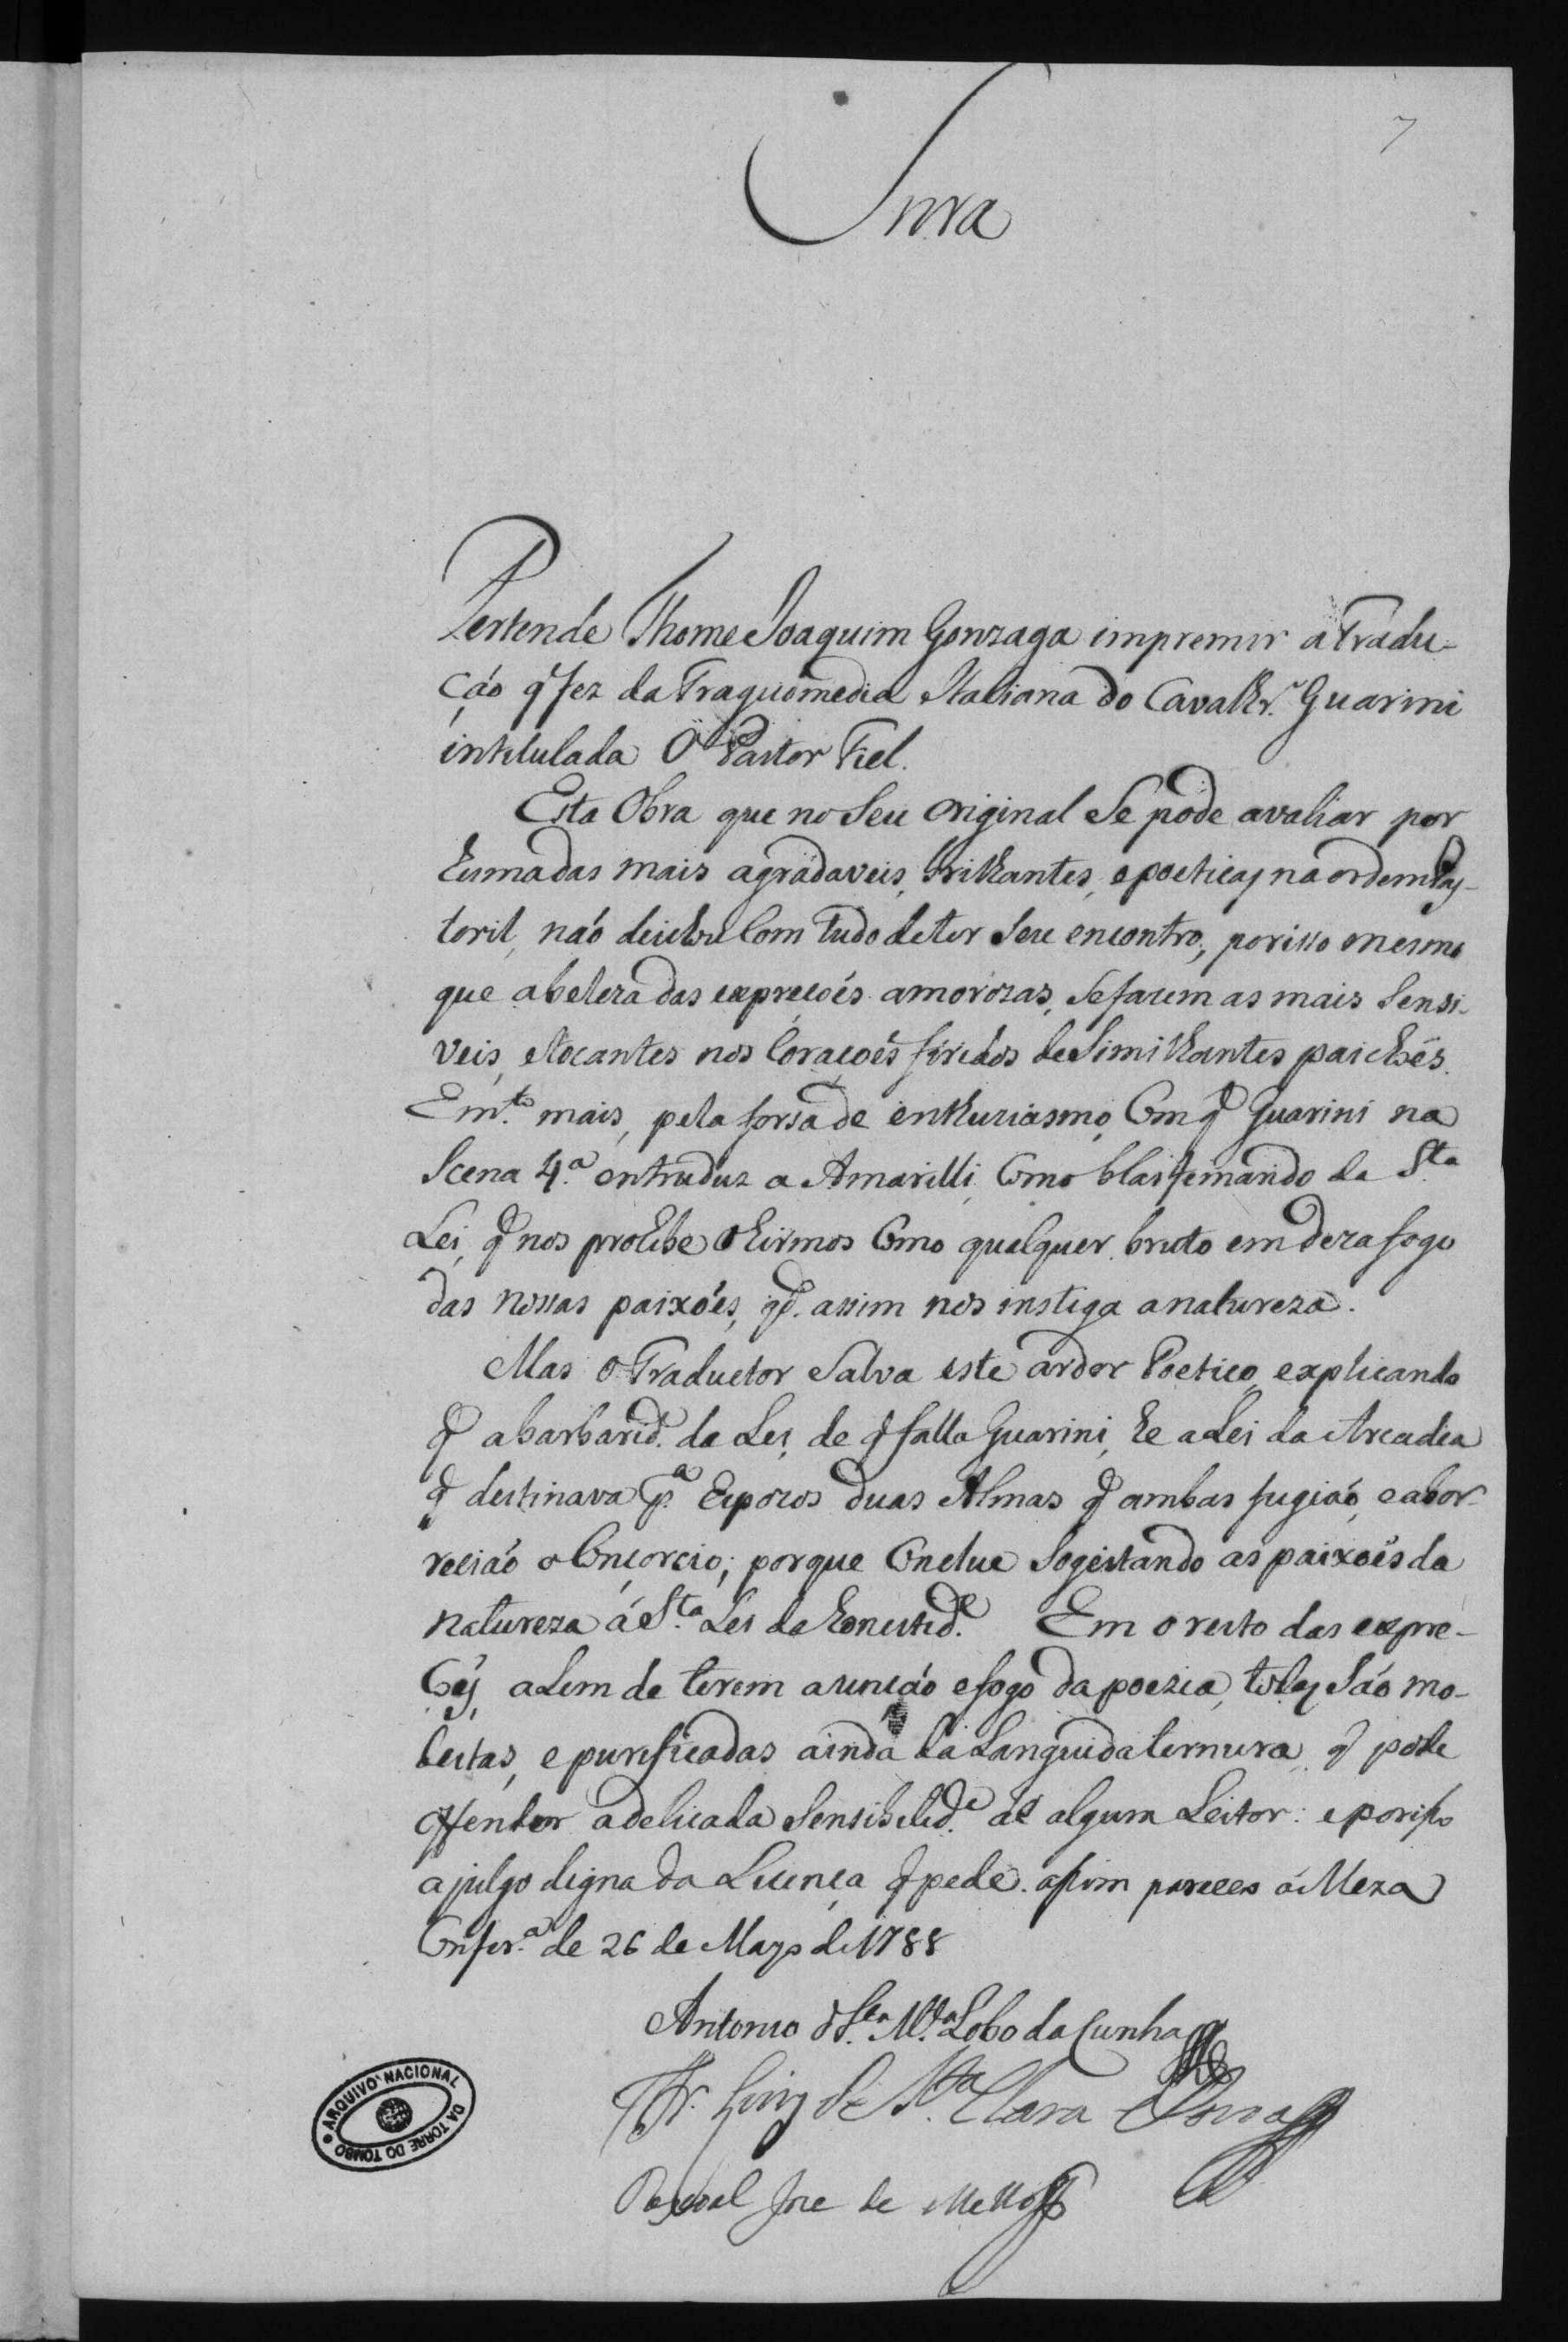 7
Snra
Pertende Thome Joaquim Gonzaga impremir a Tradu-
ção q̃ fez da Traguomedia Italiana do Cavalhr.º Guarini
intitulada O Pastor Fiel.
Esta Obra que no Seu Original Se pode avaliar por
huma das mais agradaveis, brilhantes, e poeticas na ordem Pas-
toril, não deichou Com tudo de ter Seu encontro, por isso mesmo
que a beleza das expreçoés amorozas, Se fazem as mais Sensi-
veis, e tocantes nos Coraçoés firidos de Similhantes paichoés.
E m.to mais, pela forsa de enthuziasmo, Com q̃ Guarini na
Scena 4.ª entruduz a Amarilli, Como blasfemando da S.ta
Lei, q̃ nos prohibe o hirmos Como qualquer bruto em dezafogo
das nossas paixoés, qd.º assim nos instiga a natureza.
Mas o Traductor Salva este ardor Poetico, explicando
q̃ a barbarid.e da Lei, de q̃ falla Guarini, he a Lei da Arcadia
q̃ destinava p.ª Espozos duas Almas q̃ ambas fugião, e abor-
recião o Conçorcio; porque Conclue Sogeitando as paixoés da
natureza á S.ta Lei da honestid.e Em o resto das expre-
çoẽs, alem de terem a unção e fogo da poezia, todas São mo-
destas, e purificadas ainda da Languida ternura, q̃ pode
offender a delicada Sensibelid.e de algum Leitor: e por isso
a julgo digna da Licença q̃ pede. assim pareceo á Meza
Confer.ª de 26 de Março de 1788
Antonio de S.ta M.ta Lobo da Cunha
Fr. Luiz de S.ta Clara Povoa
Pascoal Joze de Mello
ARQUIVO NACIONAL
DA TORRE DO TOMBO